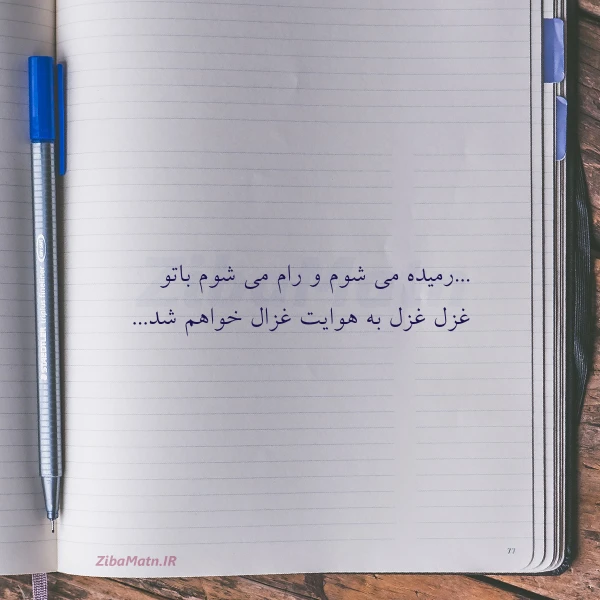 ...رمیده می شوم و رام می شوم باتو
غزل غزل به هوایت غزال خواهم شد...
77
ZibaMatn.IR